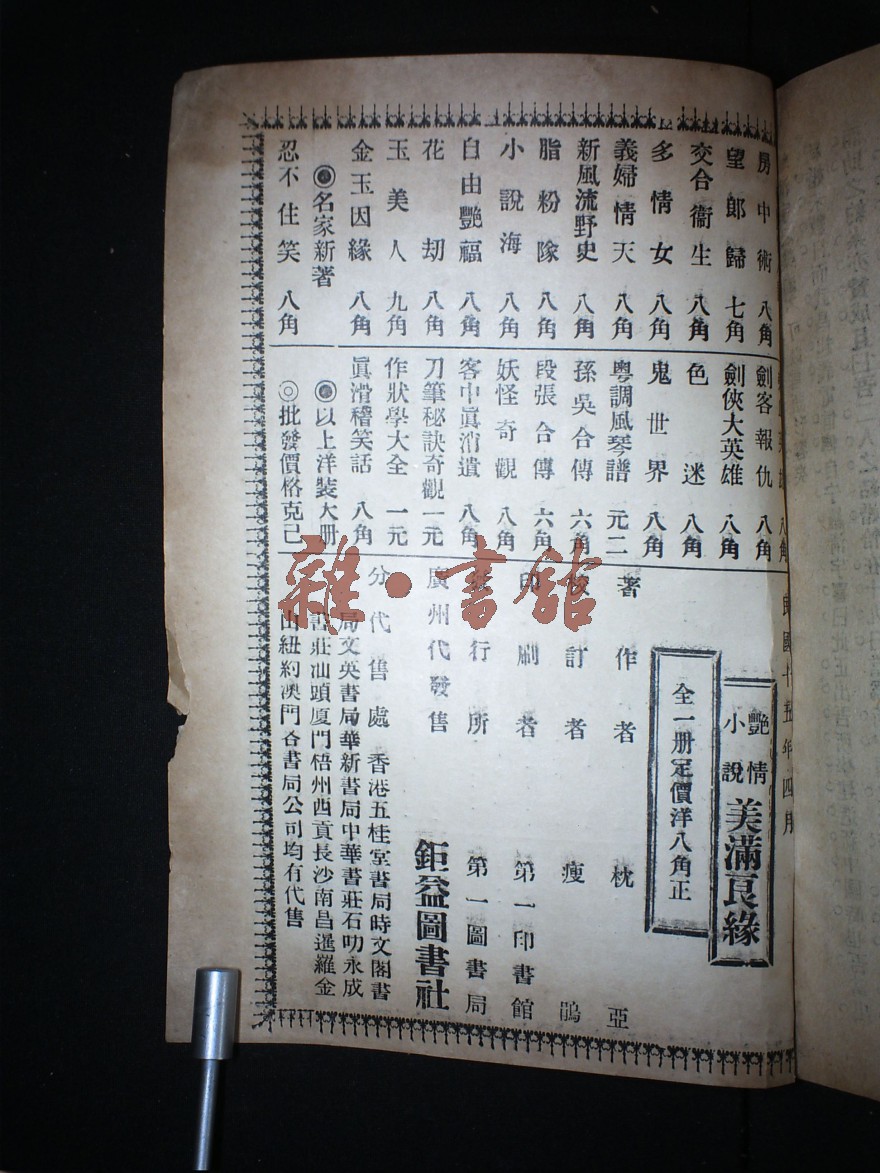 房中術 八角
望郎歸 七角
交合衞生 八角
多情女 八角
義婦情天 八角
新風流野史 八角
脂粉隊 八角
小說海 八角
自由艷福 八角
花刧 八角
玉美人 九角
金玉因緣 八角
◉名家新著
忍不住笑 八角
八角
劍客報仇 八角
劍俠大英雄 八角
色迷 八角
鬼世界 八角
粤調風琴譜 元二
孫吳合傳 六角
段張合傳 六角
妖怪奇觀 八角
客中眞消遺 八角
刀筆秘訣奇觀 一元
作狀學大全 一元
眞滑稽笑話 八角
◉以上洋裝大册
◎批發價格克己
民國十五年四月
艷情小說 美滿良緣
全一册定價洋八角正
著作者 枕亞
訂者 瘦鵑
印刷者 第一印書館
行所 第一圖書局
廣州代發售 鉅益圖書社
分代售處 香港五桂堂書局時文閣書
局文英書局華新書局中華書莊石叻永成
書莊汕頭廈門梧州西貢長沙南昌暹羅金
山紐約澳門各書局公司均有代售
雜·書館